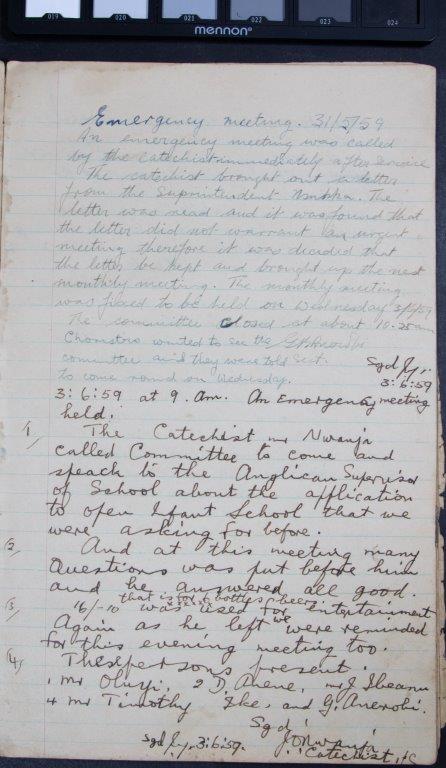 019 020 021 022 023 024
mennon
Emergency meeting. 31/5/59
An emergency meeting was called
by the catechist immediately after service
The catechist brought out a letter
from the Suprintendent Nsukka. The
letter was read and it was found that
the letter did not warrant an urgent
meeting therefore it was decided that
the letter be kept and brought up the next
monthly meeting. The monthly meeting
was fixed to be held on Wednesday 3/6/59
The committee closed at about 10.25am
Choristers wanted to see the
committee and they were told Sect.
to come round on Wednesday. Sgd
3:6:59
3:6:59 at 9.am. An Emergency meeting
held.
1/ The Catechist mr Nwanja
called Committee to come and
speack to the Anglican Supervisor
of School about the application
to open Ifant School that we
were asking for before.
2/ And at this meeting many
Questions was put before him
and he answered all good.
that is four bottles beer
3/ 16/-10 was used for Entertainment
Again as he left we were reminded
for this evening meeting too.
4/ These persons present.
1 mr Oluyi. 2 D. Anene, mr J Ibeanu
4 mr Timothy Eke, and G. Anerobi.
Sgd
J. Nwanja
Sgd 3:6:59. Catechist